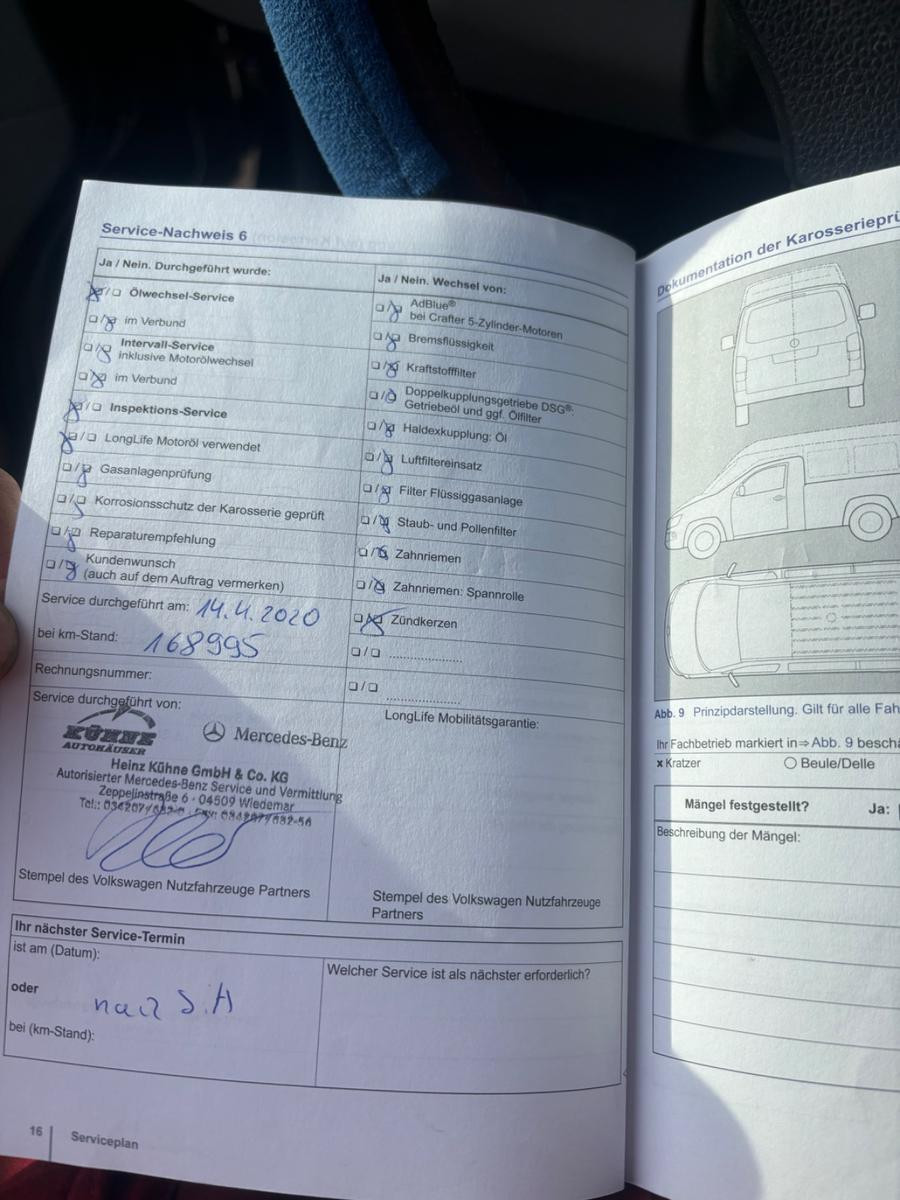 Service-Nachweis 6
Ja / Nein. Durchgeführt wurde:
Ölwechsel-Service
im Verbund
Intervall-Service
inklusive Motorölwechsel
im Verbund
Inspektions-Service
LongLife Motoröl verwendet
Gasanlagenprüfung
Korrosionsschutz der Karosserie geprüft
Reparaturempfehlung
Kundenwunsch
(auch auf dem Auftrag vermerken)
Service durchgeführt am: 14.4.2020
bei km-Stand: 168995
Rechnungsnummer:
Service durchgeführt von:
KÜHNE
AUTOHÄUSER
Mercedes-Benz
Heinz Kühne GmbH & Co. KG
Autorisierter Mercedes-Benz Service und Vermittlung
Zeppelinstraße 6 · 04509 Wiedemar
Stempel des Volkswagen Nutzfahrzeuge Partners
Ja / Nein. Wechsel von:
AdBlue®
bei Crafter 5-Zylinder-Motoren
Bremsflüssigkeit
Kraftstofffilter
Doppelkupplungsgetriebe DSG®:
Getriebeöl und ggf. Ölfilter
Haldexkupplung: Öl
Luftfiltereinsatz
Filter Flüssiggasanlage
Staub- und Pollenfilter
Zahnriemen
Zahnriemen: Spannrolle
Zündkerzen
LongLife Mobilitätsgarantie:
Stempel des Volkswagen Nutzfahrzeuge
Partners
Ihr nächster Service-Termin
ist am (Datum):
oder
bei (km-Stand):
Welcher Service ist als nächster erforderlich?
16
Serviceplan
Dokumentation der Karosserieprü
Abb. 9 Prinzipdarstellung. Gilt für alle Fah
Ihr Fachbetrieb markiert in⇒ Abb. 9 beschä
x Kratzer
Beule/Delle
Mängel festgestellt?
Ja:
Beschreibung der Mängel: